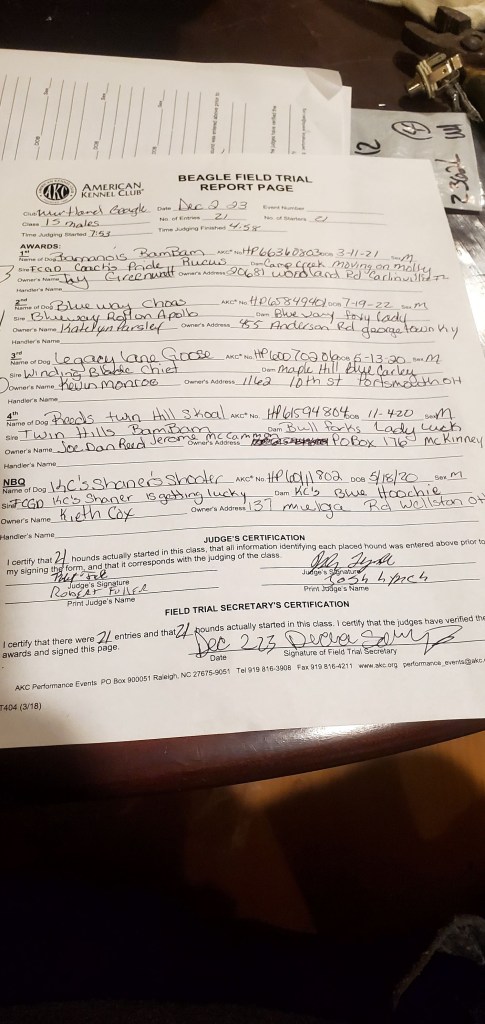 BEAGLE FIELD TRIAL
REPORT PAGE
AKC AMERICAN KENNEL CLUB
Club Beagle Date Dec 2 23 Event Number
Class 15 males No. of Entries 21 No. of Starters 21
Time Judging Started 7:53 Time Judging Finished 4:58
AWARDS:
1st
Name of Dog BamBam AKC No. HP66360803 DOB 3-11-21 Sex M
Sire FCGD Pride Rucus Dam Camp Creek moving on molly
Owner's Name Jay Greenwalt Owner's Address 20681 woodland Rd Carlinville
Handler's Name
2nd
Name of Dog Blue way Choas AKC No. HP65849901 DOB 7-19-22 Sex M
Sire Blueway Apollo Dam Blue way foxy lady
Owner's Name Katelyn Parsley Owner's Address 485 Anderson Rd georgetown Ky
Handler's Name
3rd
Name of Dog Legacy Lane Goose AKC No. DOB 5-13-20 Sex M
Sire Winding Blade Chief Dam Maple Hill
Owner's Name Kevin monroe Owner's Address 1162 10th st Portsmouth OH
Handler's Name
4th
Name of Dog Reeds twin Hill Skoal AKC No. HP61594804 DOB 11-420 Sex M
Sire Twin Hills BamBam Dam Bull Forks Lady Luck
Owner's Name Joe Dan Reed Jerome McCammon Owner's Address PO Box 176 McKinney
Handler's Name
NBQ
Name of Dog KC's Shaner's Shooter AKC No. HP60111802 DOB 5/18/20 Sex M
Sire FCGD KC's Shaner is getting lucky Dam KC's Blue Hoochie
Owner's Name Kieth Cox Owner's Address 137 Rd Wellston OH
Handler's Name
JUDGE'S CERTIFICATION
I certify that 21 hounds actually started in this class, that all information identifying each placed hound was entered above prior to
my signing the form, and that it corresponds with the judging of the class.
Judge's Signature Judge's Signature
Robert Fuller Josh Lynch
Print Judge's Name Print Judge's Name
FIELD TRIAL SECRETARY'S CERTIFICATION
I certify that there were 21 entries and that 21 hounds actually started in this class. I certify that the judges have verified the
awards and signed this page.
Dec 2 23
Date Signature of Field Trial Secretary
AKC Performance Events PO Box 900051 Raleigh, NC 27675-9051 Tel 919 816-3908 Fax 919 816-4211 www.akc.org performance_events@akc
T404 (3/18)